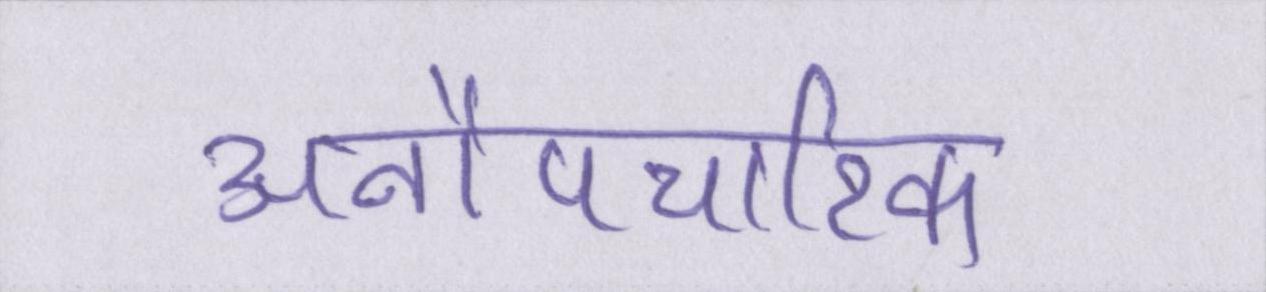 अनौपचारिक